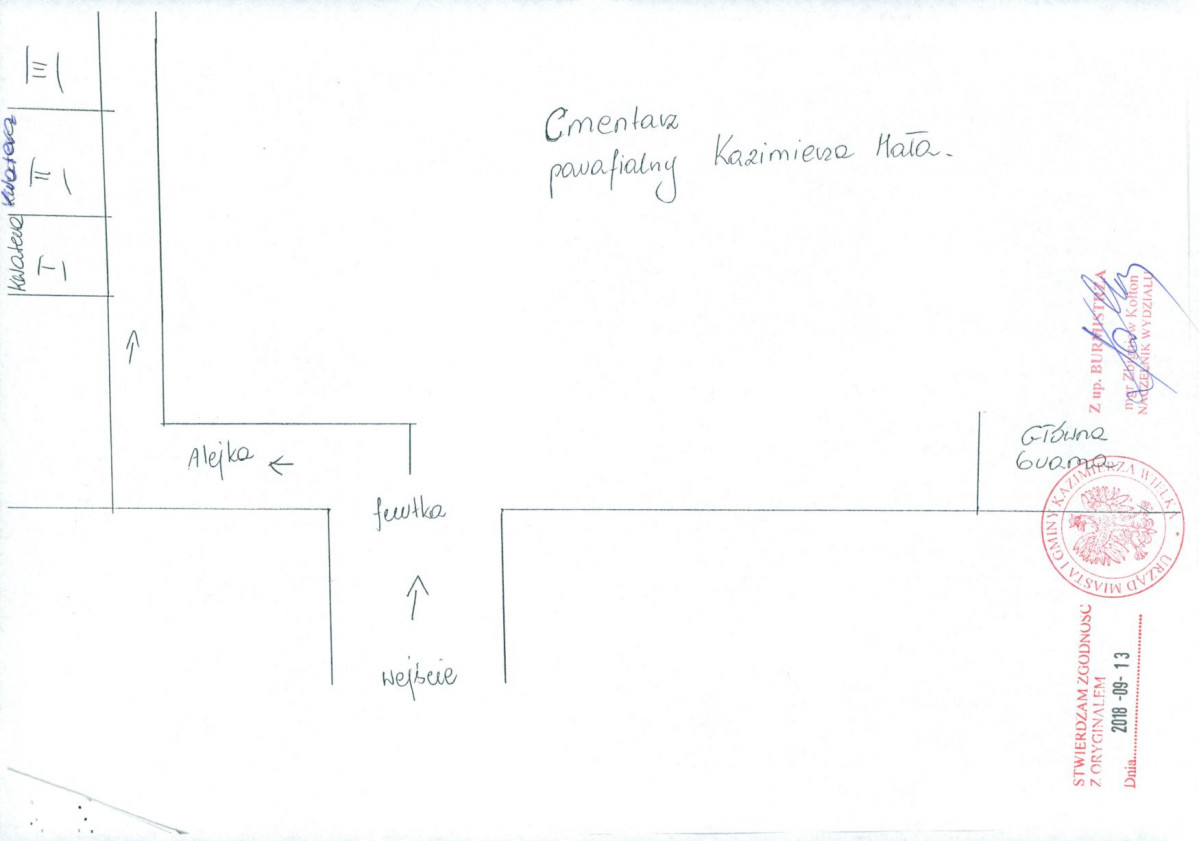 Cmentarz
parafialny Kazimierza Mała.
III
Kwatera
II
Kwatera
I
Alejka
furtka
wejście
Główna
brama
Z up. BURMISTRZA
mgr Zbigniew Kołton
NACZELNIK WYDZIAŁU
URZĄD MIASTA I GMINY KAZIMIERZA WIELKA *
STWIERDZAM ZGODNOŚĆ
Z ORYGINAŁEM
Dnia 2018 -09- 13